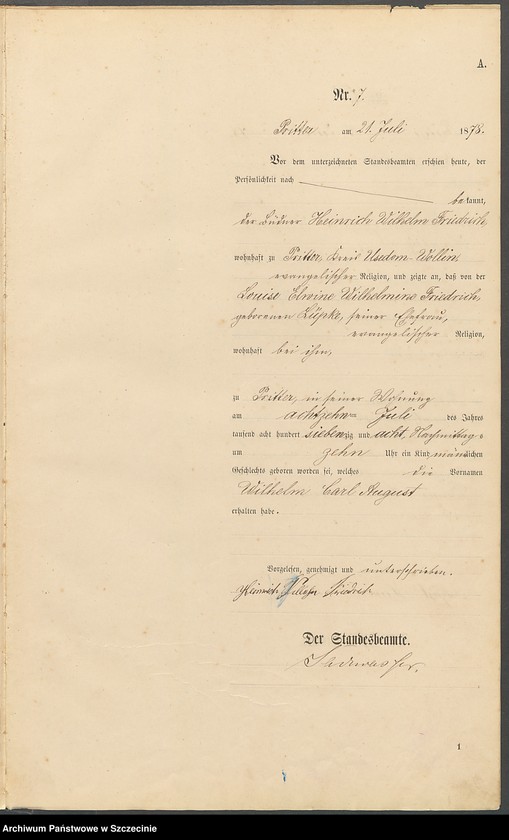 A.
Nr. 7.
Pritter am 21. Juli 1878.
Vor dem unterzeichneten Standesbeamten erschien heute, der
Persönlichkeit nach
bekannt,
der Büdner Heinrich Wilhelm Friedrich,
wohnhaft zu Pritter, Kreis Usedom-Wollin
evangelischer Religion, und zeigte an, daß von der
Louise Elwine Wilhelmine Friedrich,
geborenen Lüpke, seiner Ehefrau,
evangelischer Religion,
wohnhaft bei ihm,
zu Pritter, in seiner Wohnung
am achtzehnten Juli des Jahres
tausend acht hundert siebenzig und acht, Nachmittags
um zehn Uhr ein Kind männlichen
Geschlechts geboren worden sei, welches die Vornamen
Wilhelm Carl August
erhalten habe.
Vorgelesen, genehmigt und unterschrieben.
Heinrich Wilhelm Friedrich
Der Standesbeamte.
1
Archiwum Państwowe w Szczecinie